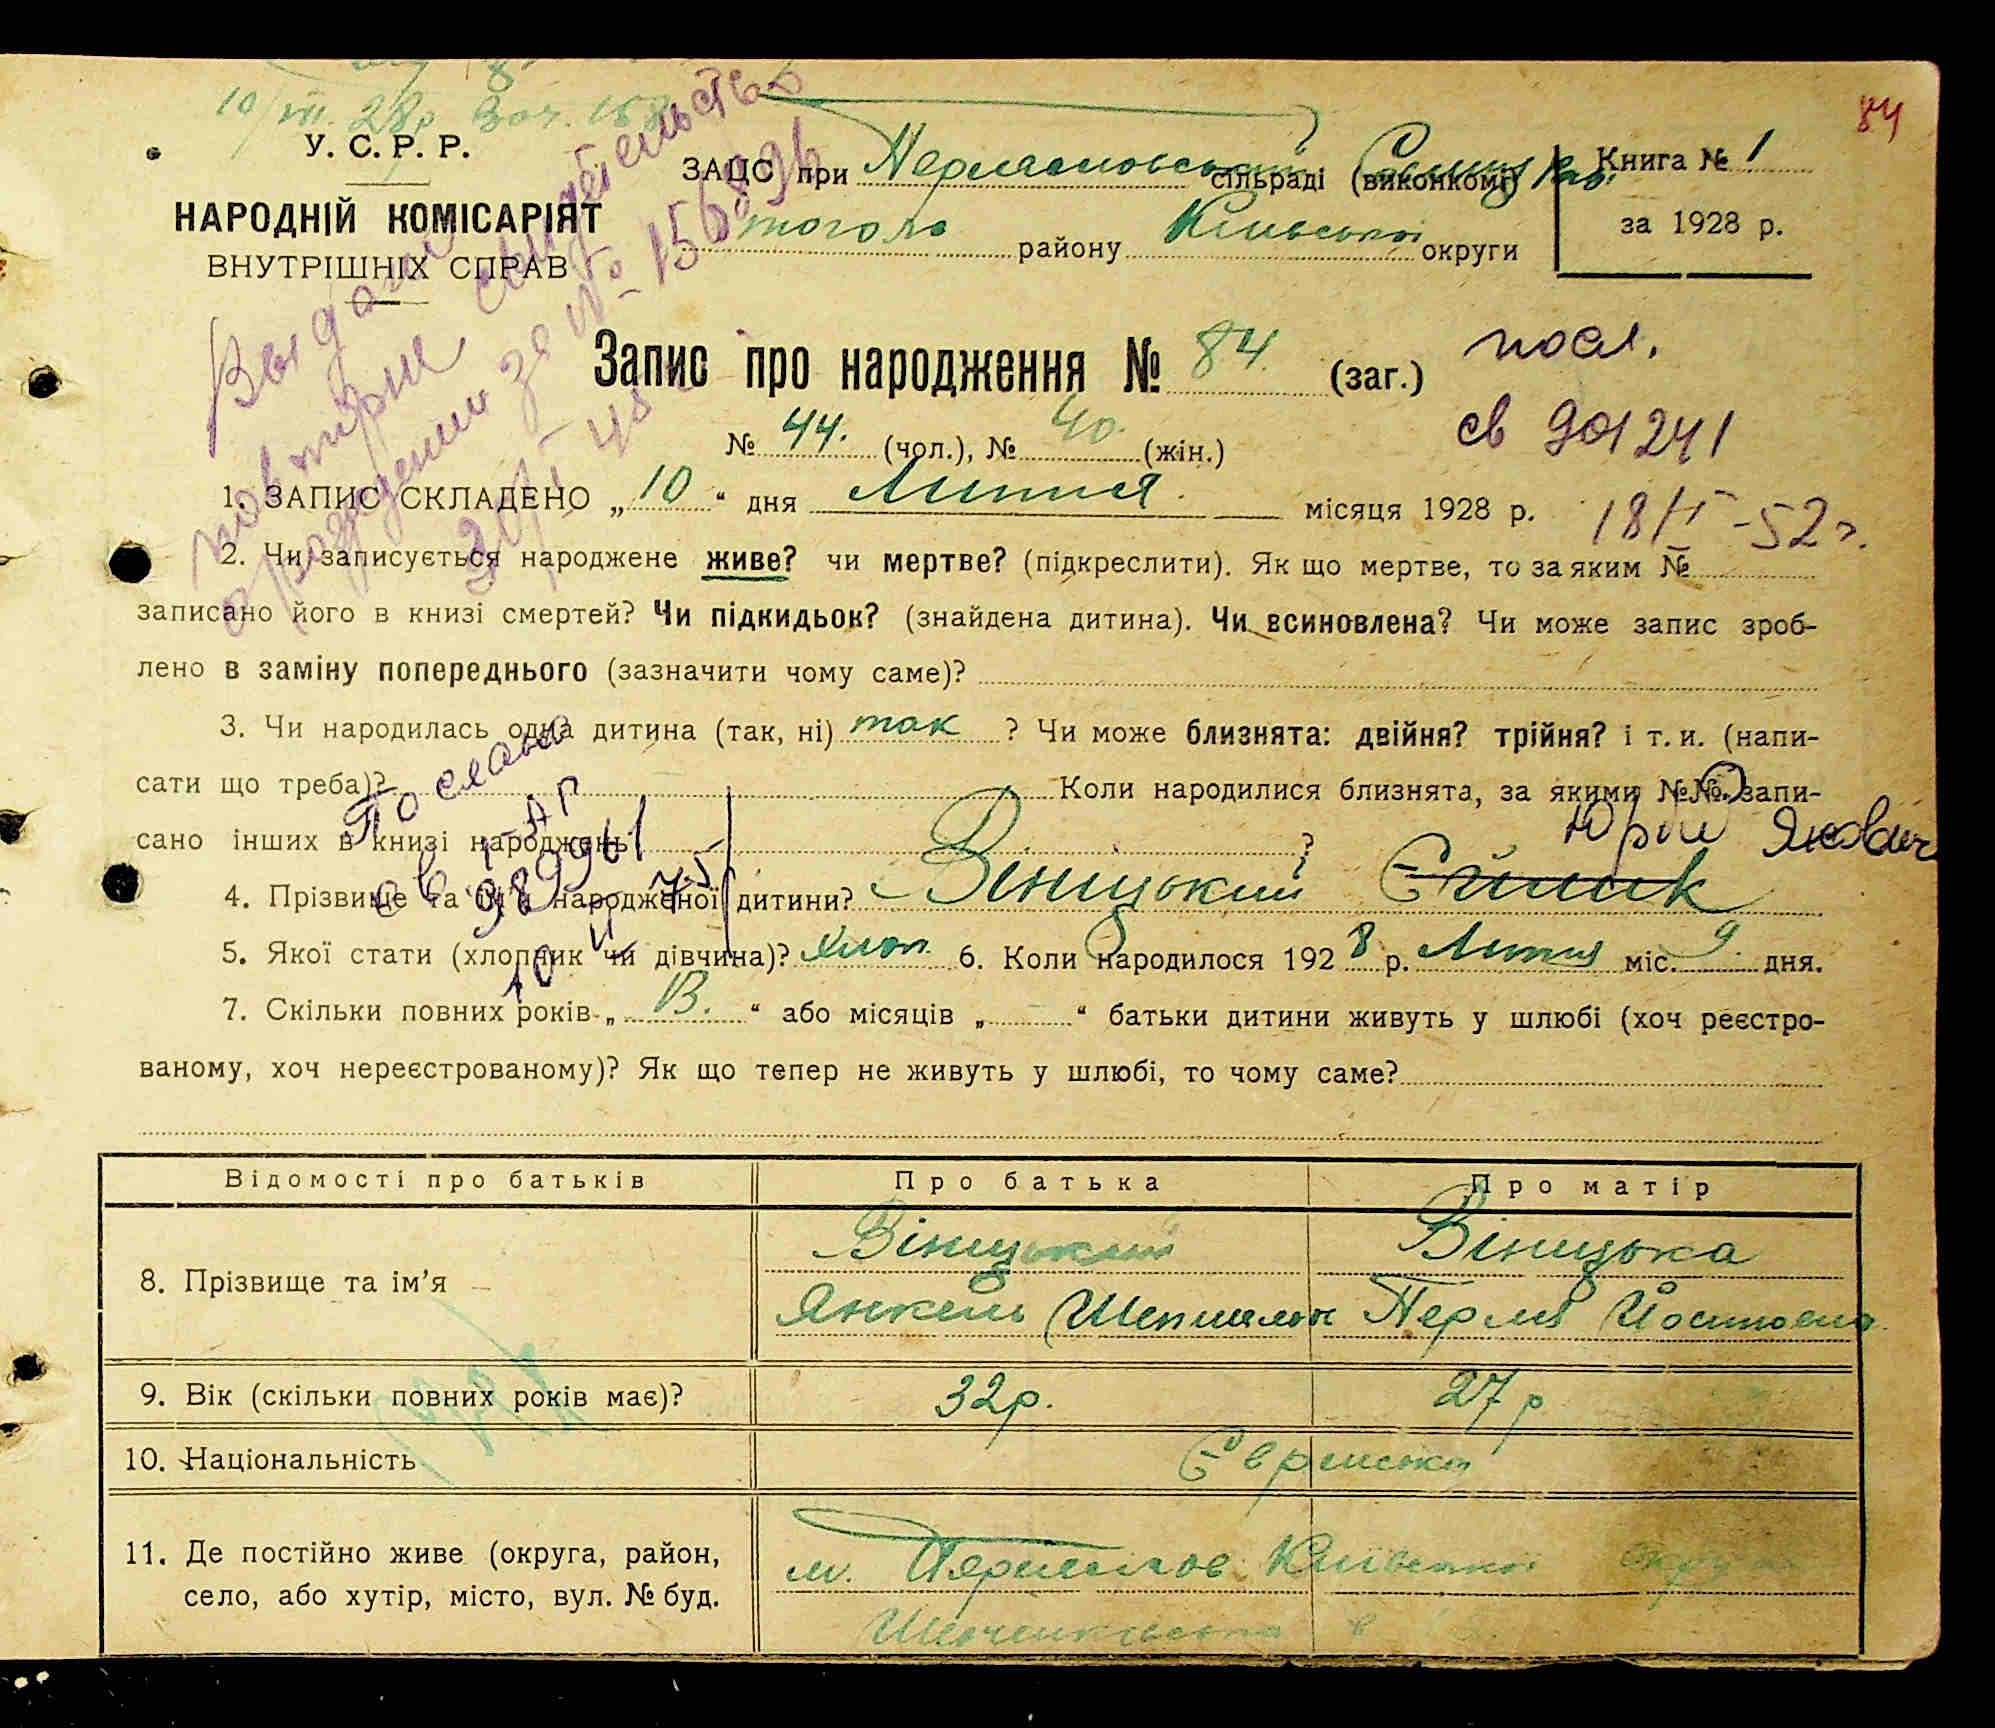 10/VII. 28р
84
У. С. Р. Р.
НАРОДНІЙ КОМІСАРІЯТ
ВНУТРІШНІХ СПРАВ
ЗАЦС при сільраді (виконкомі)
району Київської округи
Книга № 1
за 1928 р.
повторне свидетельство
о рождении за №
Запис про народження № 84. (заг.)
посл.
св 901241
18/І-52 г.
№ 44. (чол.), № 40. (жін.)
1. ЗАПИС СКЛАДЕНО „ 10 “ дня Липня місяця 1928 р.
2. Чи записується народжене живе? чи мертве? (підкреслити). Як що мертве, то за яким №
записано його в книзі смертей? Чи підкидьок? (знайдена дитина). Чи всиновлена? Чи може запис зроб-
лено в заміну попереднього (зазначити чому саме)?
3. Чи народилась одна дитина (так, ні) так ? Чи може близнята: двійня? трійня? і т. и. (напи-
сати що треба)? Коли народилися близнята, за якими №№ запи-
сано інших в книзі народжень ?
Послано
Юрий Яковлич
4. Прізвище та ім'я народженої дитини? Вініцький Єйник
5. Якої стати (хлопчик чи дівчина)? хлоп. 6. Коли народилося 1928 р. Липня міс. 9 дня.
7. Скільки повних років „ 13. “ або місяців „ “ батьки дитини живуть у шлюбі (хоч реєстро-
ваному, хоч нереєстрованому)? Як що тепер не живуть у шлюбі, то чому саме?
Відомості про батьків Про батька Про матір
8. Прізвище та ім'я
Вініцький Вініцька
Янкель Перля Йосиповна
9. Вік (скільки повних років має)? 32р. 27р
10. Національність Єврейської
11. Де постійно живе (округа, район,
село, або хутір, місто, вул. № буд.
м. Київської округи
Шевченківська